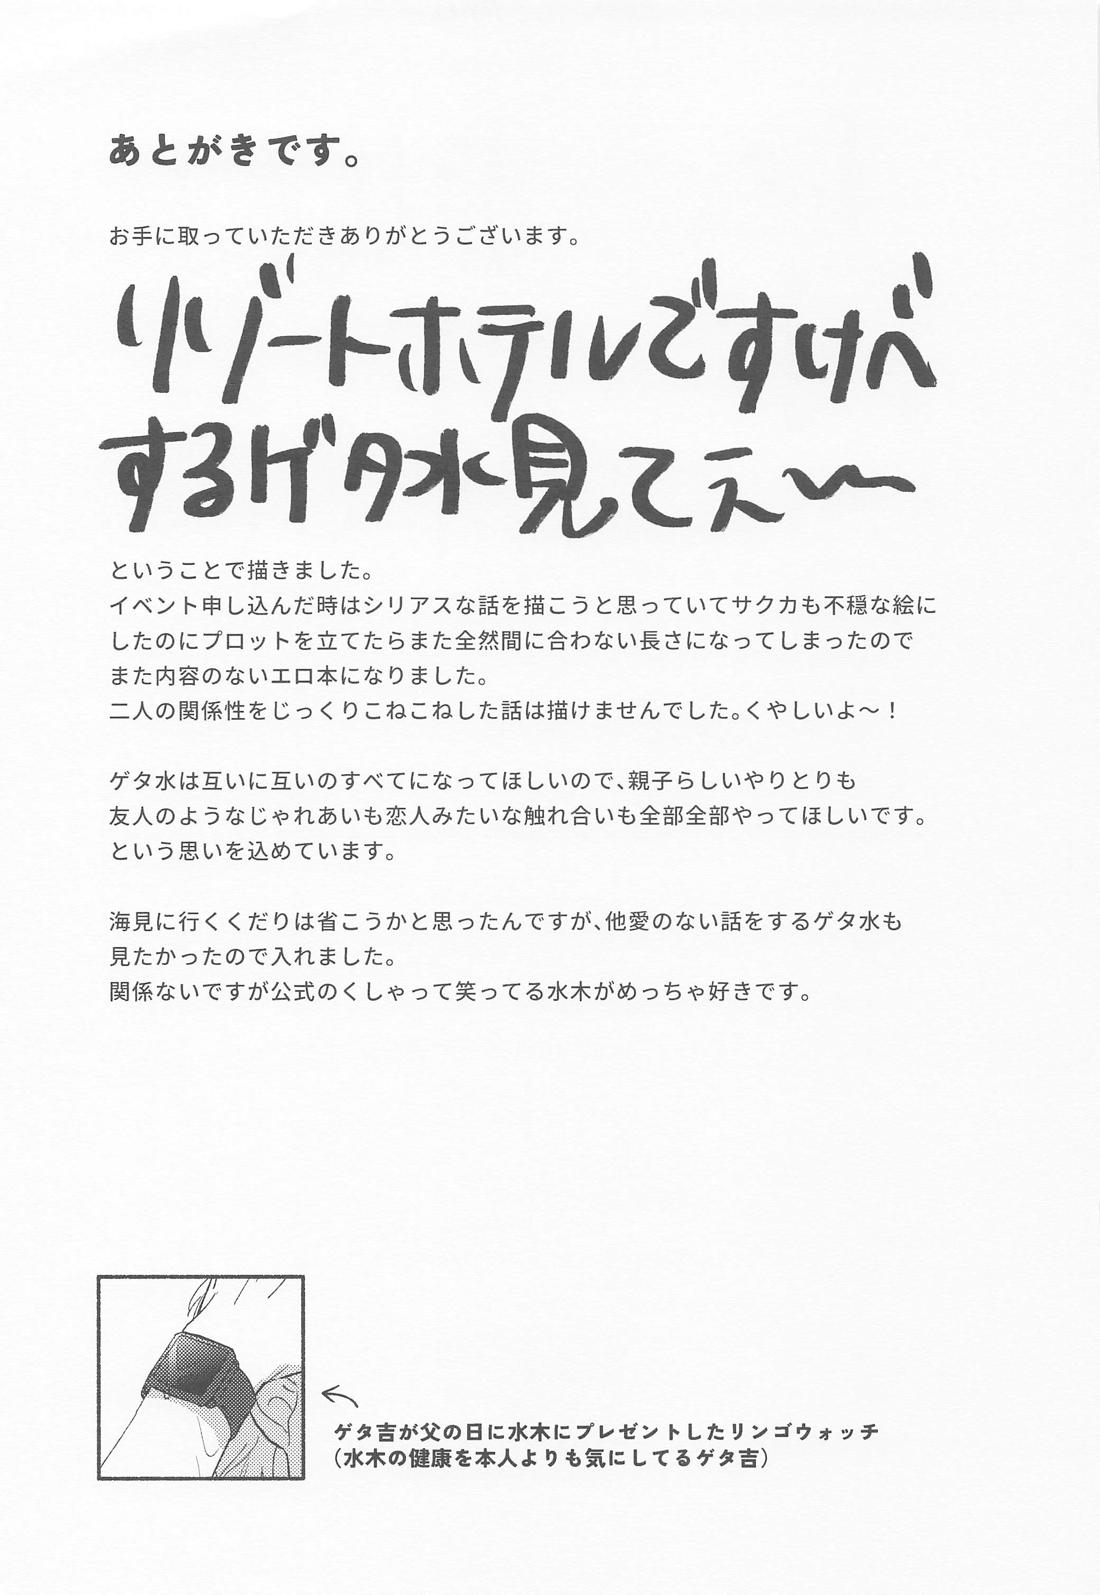 あとがきです。
お手に取っていただきありがとうございます。
リゾートホテルですけべ
するゲタ水見てぇ〜
ということで描きました。
イベント申し込んだ時はシリアスな話を描こうと思っていてサクカも不穏な絵に
したのにプロットを立てたらまた全然間に合わない長さになってしまったので
また内容のないエロ本になりました。
二人の関係性をじっくりこねこねした話は描けませんでした。くやしいよ〜！
ゲタ水は互いに互いのすべてになってほしいので、親子らしいやりとりも
友人のようなじゃれあいも恋人みたいな触れ合いも全部全部やってほしいです。
という思いを込めています。
海見に行くくだりは省こうかと思ったんですが、他愛のない話をするゲタ水も
見たかったので入れました。
関係ないですが公式のくしゃって笑ってる水木がめっちゃ好きです。
ゲタ吉が父の日に水木にプレゼントしたリンゴウォッチ
（水木の健康を本人よりも気にしてるゲタ吉）